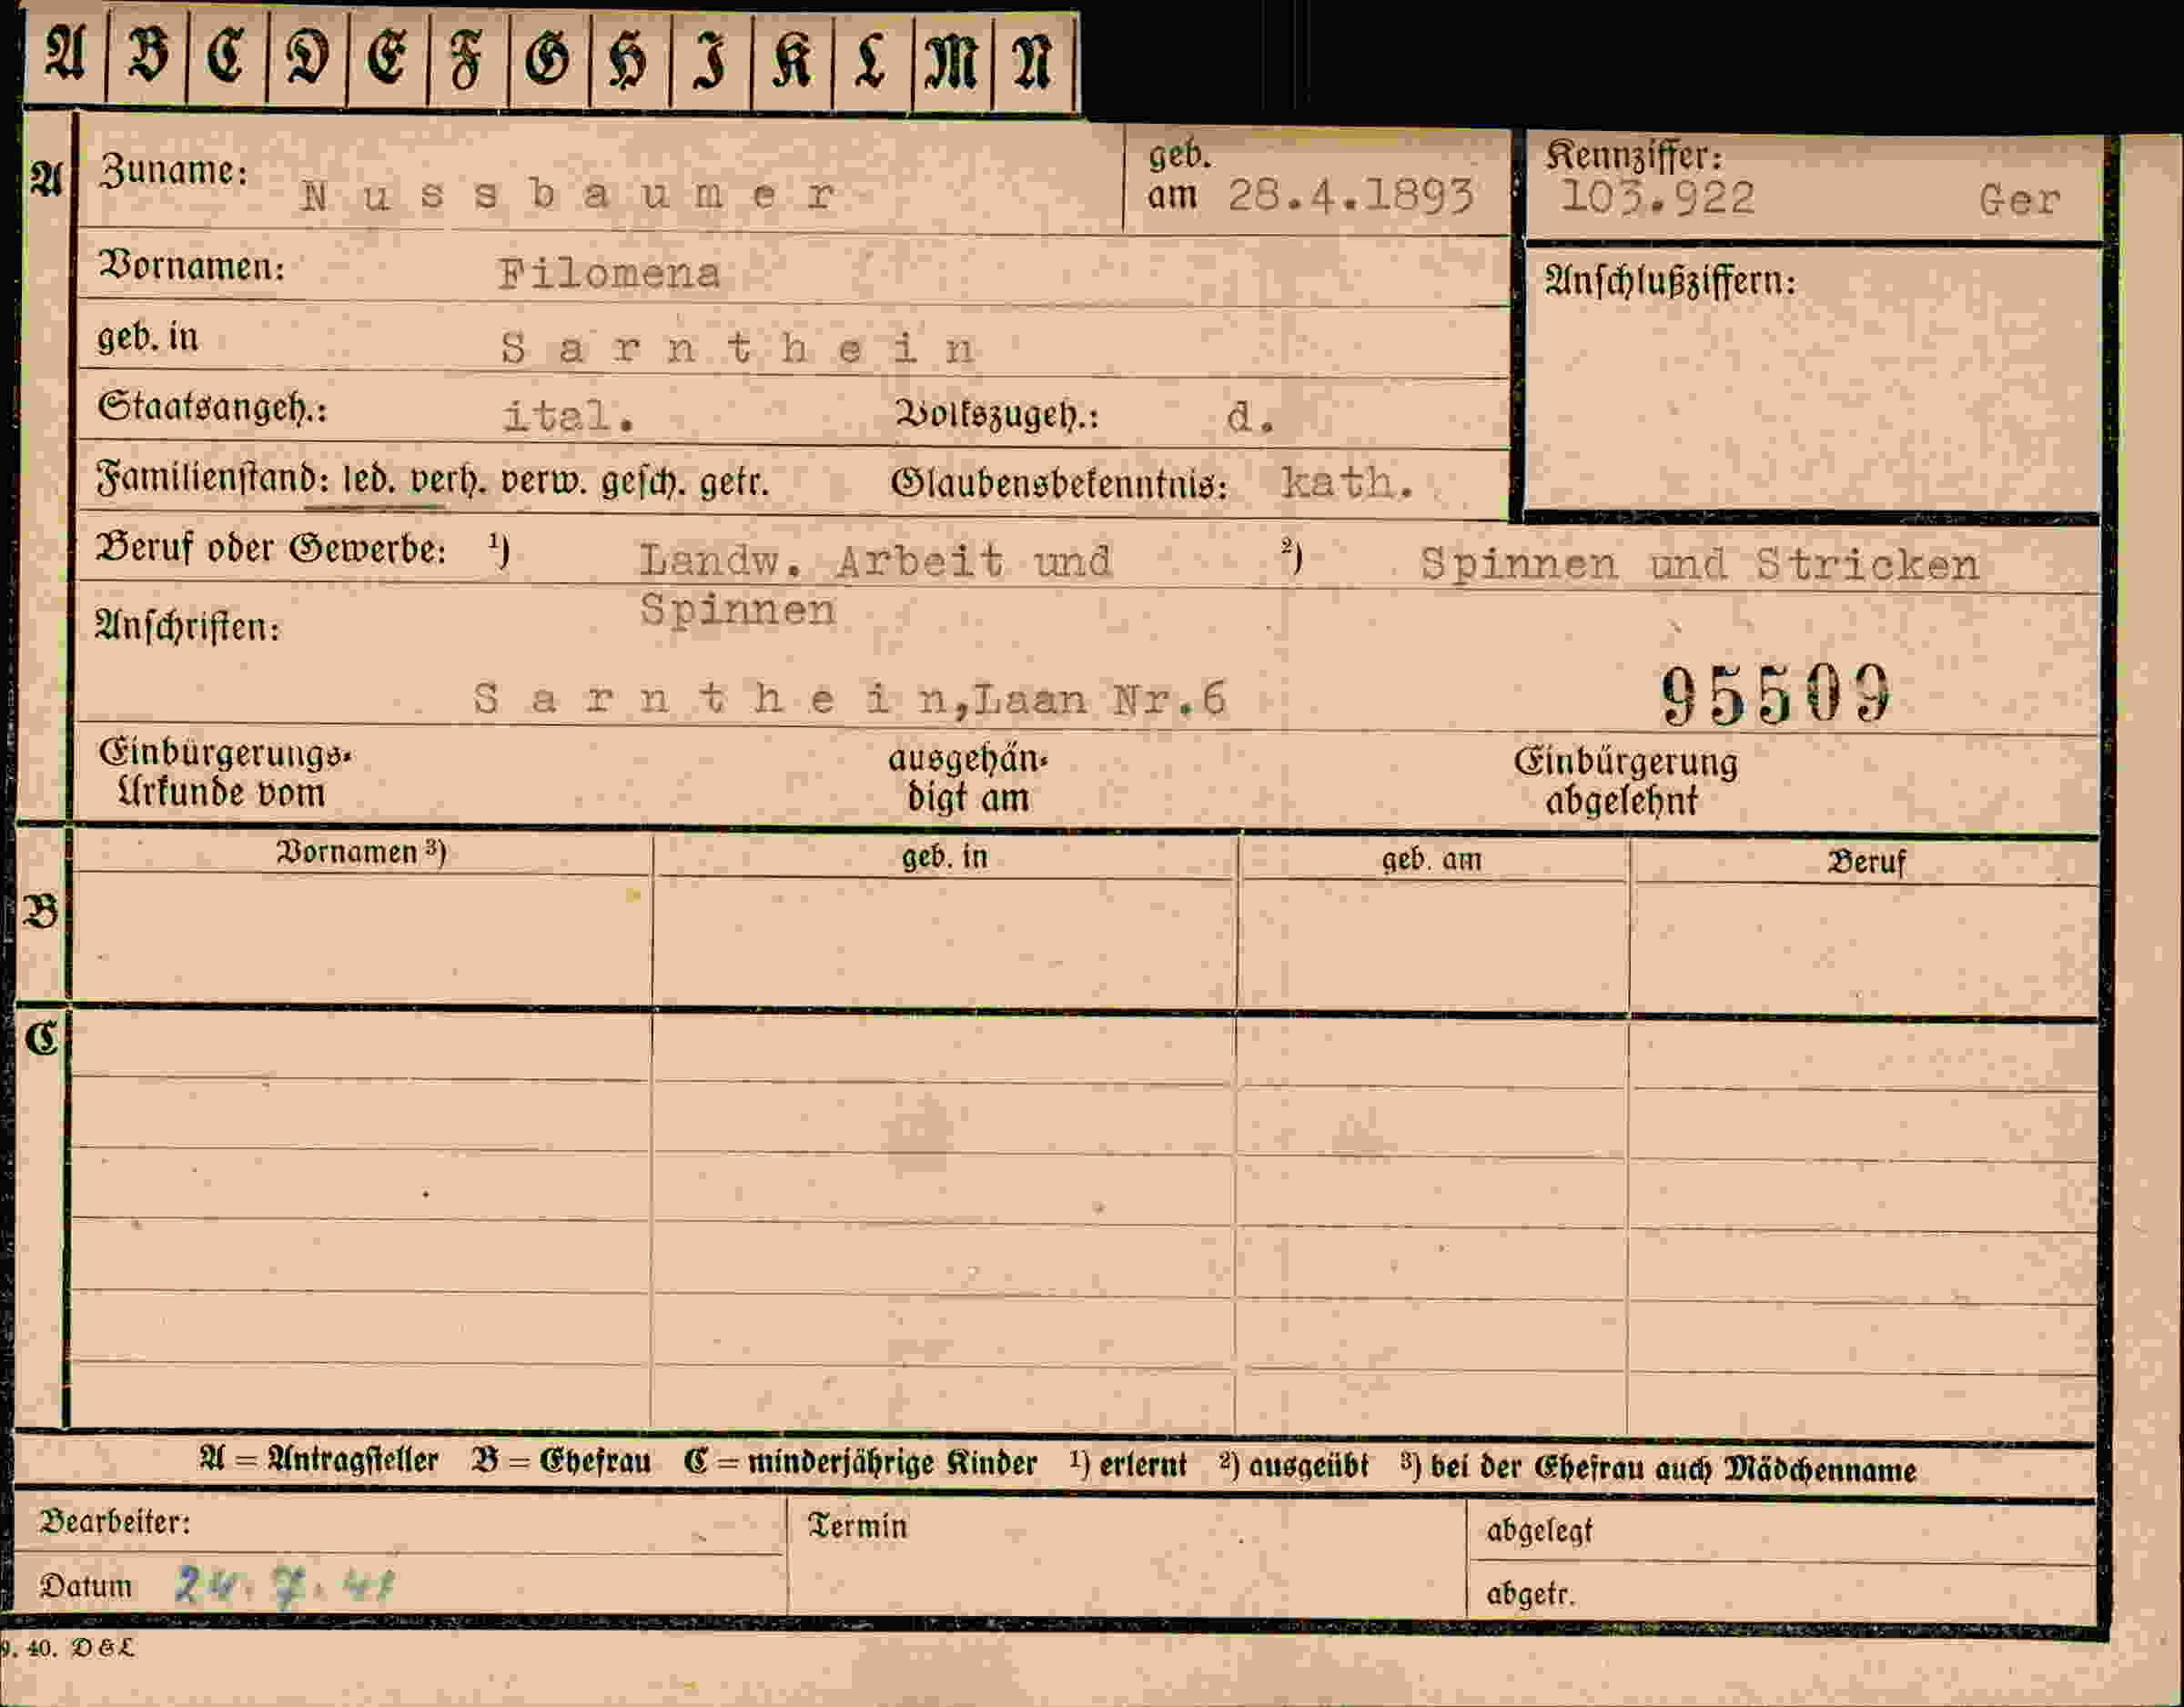 A B C D E F G H I K L M N
A Zuname: Nussbaumer geb. am 28.4.1893 Kennziffer: 103.922 Ger
Vornamen: Filomena Anschlußziffern:
geb. in Sarnthein
Staatsangeh.: ital. Volkszugeh.: d.
Familienstand: led. verh. verw. gesch. getr. Glaubensbekenntnis: kath.
Beruf oder Gewerbe: 1) Landw. Arbeit und 2) Spinnen und Stricken
Spinnen
Anschriften:
Sarnthein, Laan Nr.6 95509
Einbürgerungs- ausgehän- Einbürgerung
Urkunde vom digt am abgelehnt
Vornamen 3) geb. in geb. am Beruf
B
C
A = Antragsteller B = Ehefrau C = minderjährige Kinder 1) erlernt 2) ausgeübt 3) bei der Ehefrau auch Mädchenname
Bearbeiter: Termin abgelegt
Datum 24.7.41 abgetr.
9. 40. D & L